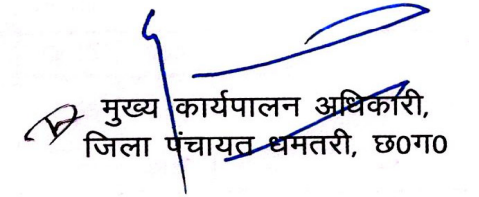 मुख्य कार्यपालन अधिकारी,
जिला पंचायत धमतरी, छ०ग०